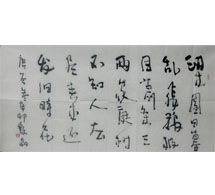 梁園日暮
乱飛鴉极
目萧条三
两家庭树
不知人去
尽春来还
发旧時花